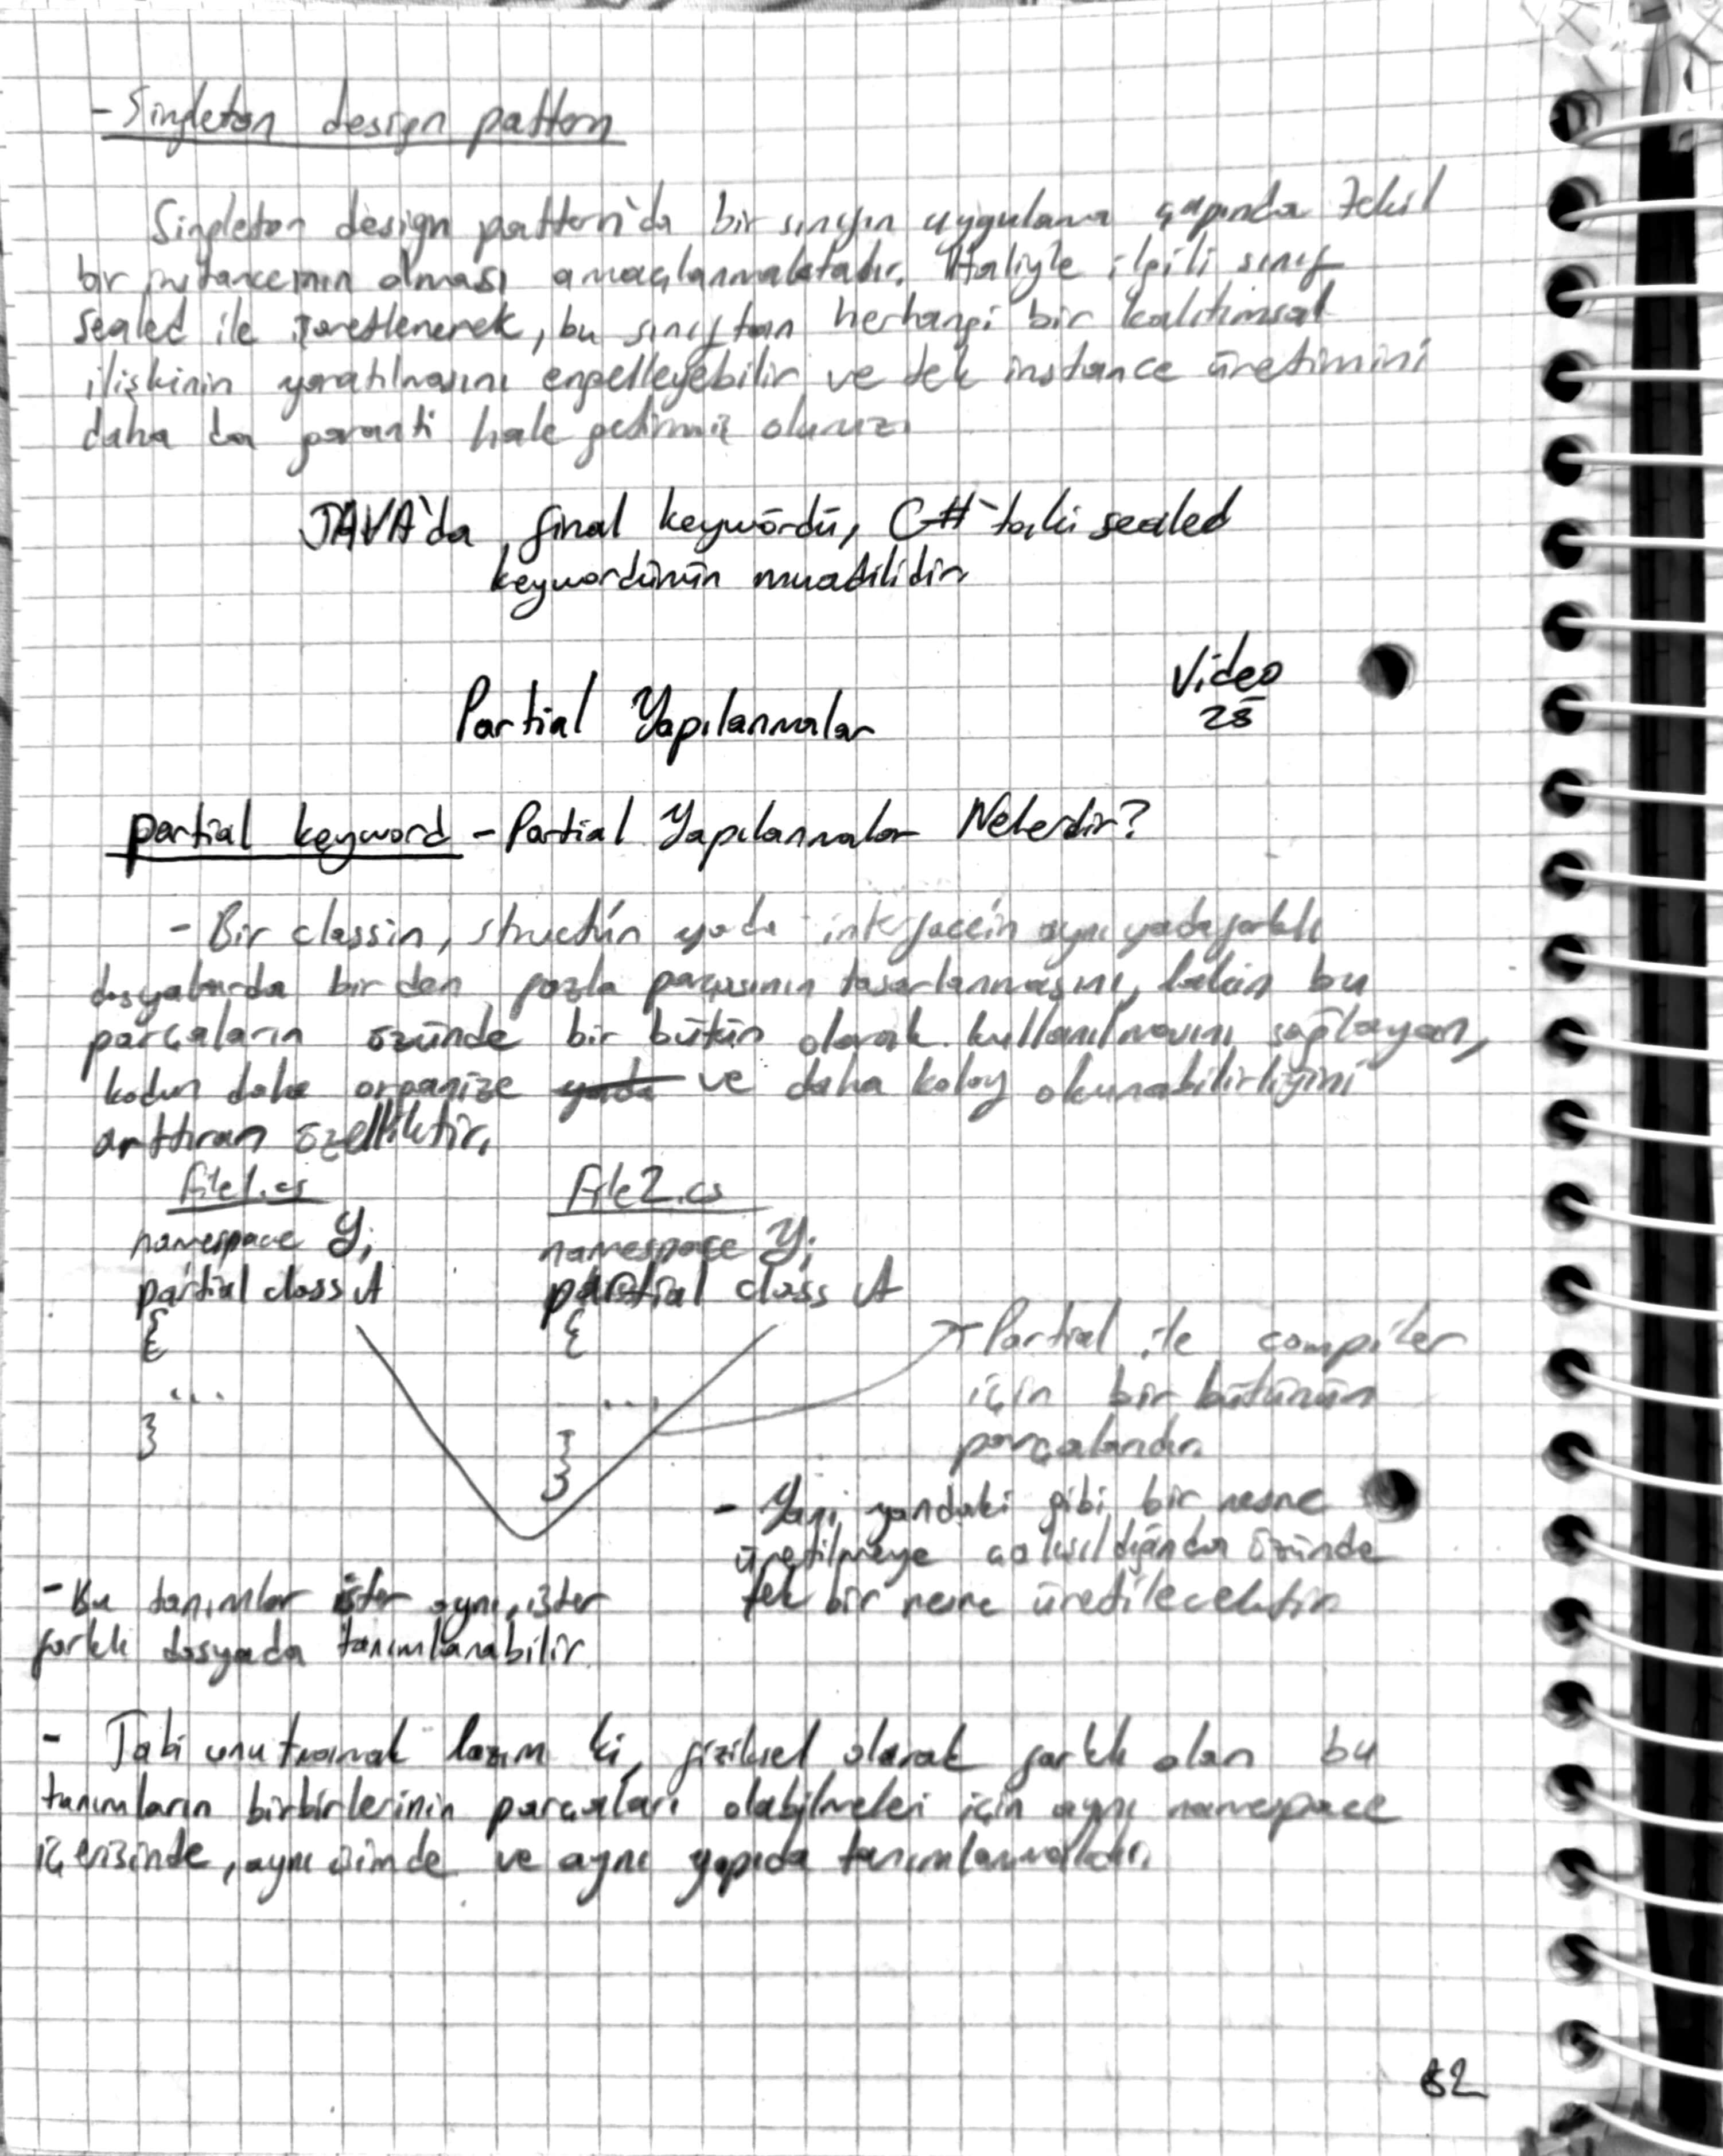 - Singleton design pattern
Singleton design pattern'da bir sınıfın uygulama çapında tekil
bir instanceının olması amaçlanmaktadır. Haliyle ilgili sınıf
sealed ile işaretlenerek, bu sınıftan herhangi bir kalıtımsal
ilişkinin yaratılmasını engelleyebilir ve tek instance üretimini
daha da garanti hale getirmiş oluruz.
JAVA'da final keywördü, C#'taki sealed
keywordünün muadilidir
Video
28
Partial Yapılanmalar
partial keyword - Partial Yapılanmalar Nelerdir?
- Bir classın, struct'ın yada interface'in aynı yada farklı
dosyalarda birden fazla parçasının tasarlanmasını, lakin bu
parçaların özünde bir bütün olarak kullanılmasını sağlayan,
kodun daha organize yada ve daha kolay okunabilirliğini
arttıran özelliktir.
file1.cs
namespace Y;
partial class A
{
...
}
file2.cs
namespace Y;
partial class A
{
...
}
}
Partial ile compiler
için bir bütünün
parçalarıdır.
- Yani yandaki gibi bir nesne
üretilmeye çalışıldığında özünde
tek bir nesne üretilecektir
- Bu tanımlar ister aynı, ister
farklı dosyada tanımlanabilir.
- Tabi unutmamak lazım ki, fiziksel olarak farklı olan bu
tanımların birbirlerinin parçaları olabilmeleri için aynı namespace
içerisinde, aynı isimde ve aynı yapıda tanımlanmalıdır.
62